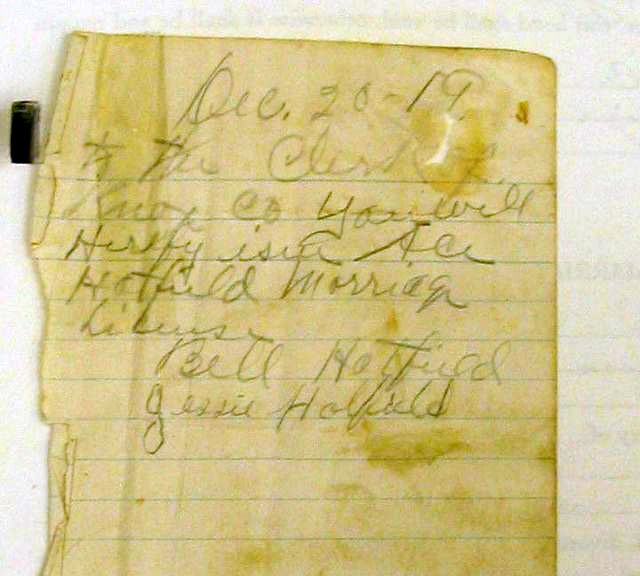 Dec. 20-19
to the Clerk of
Knox Co you will
Hereby isue Ace
Hatfield Morriage
License
Bell Hatfield
Jessie Hatfield